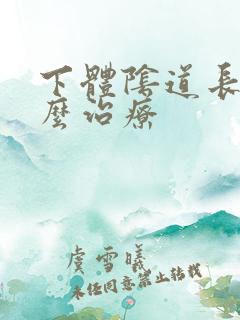 下體陰道長
麼治療
虞雪曦
未经同意禁止转载